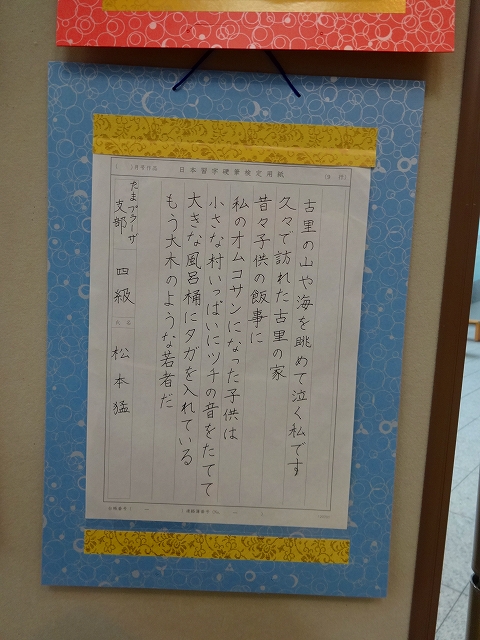 日本習字硬筆検定用紙
古里の山や海を眺めて泣く私です
久々で訪れた古里の家
昔々子供の飯事に
私のオムコサンになった子供は
小さな村いっぱいにツチの音をたてて
大きな風呂桶にタガを入れている
もう大木のような若者だ
たまプラーザ
支部
四級
氏名
松本猛